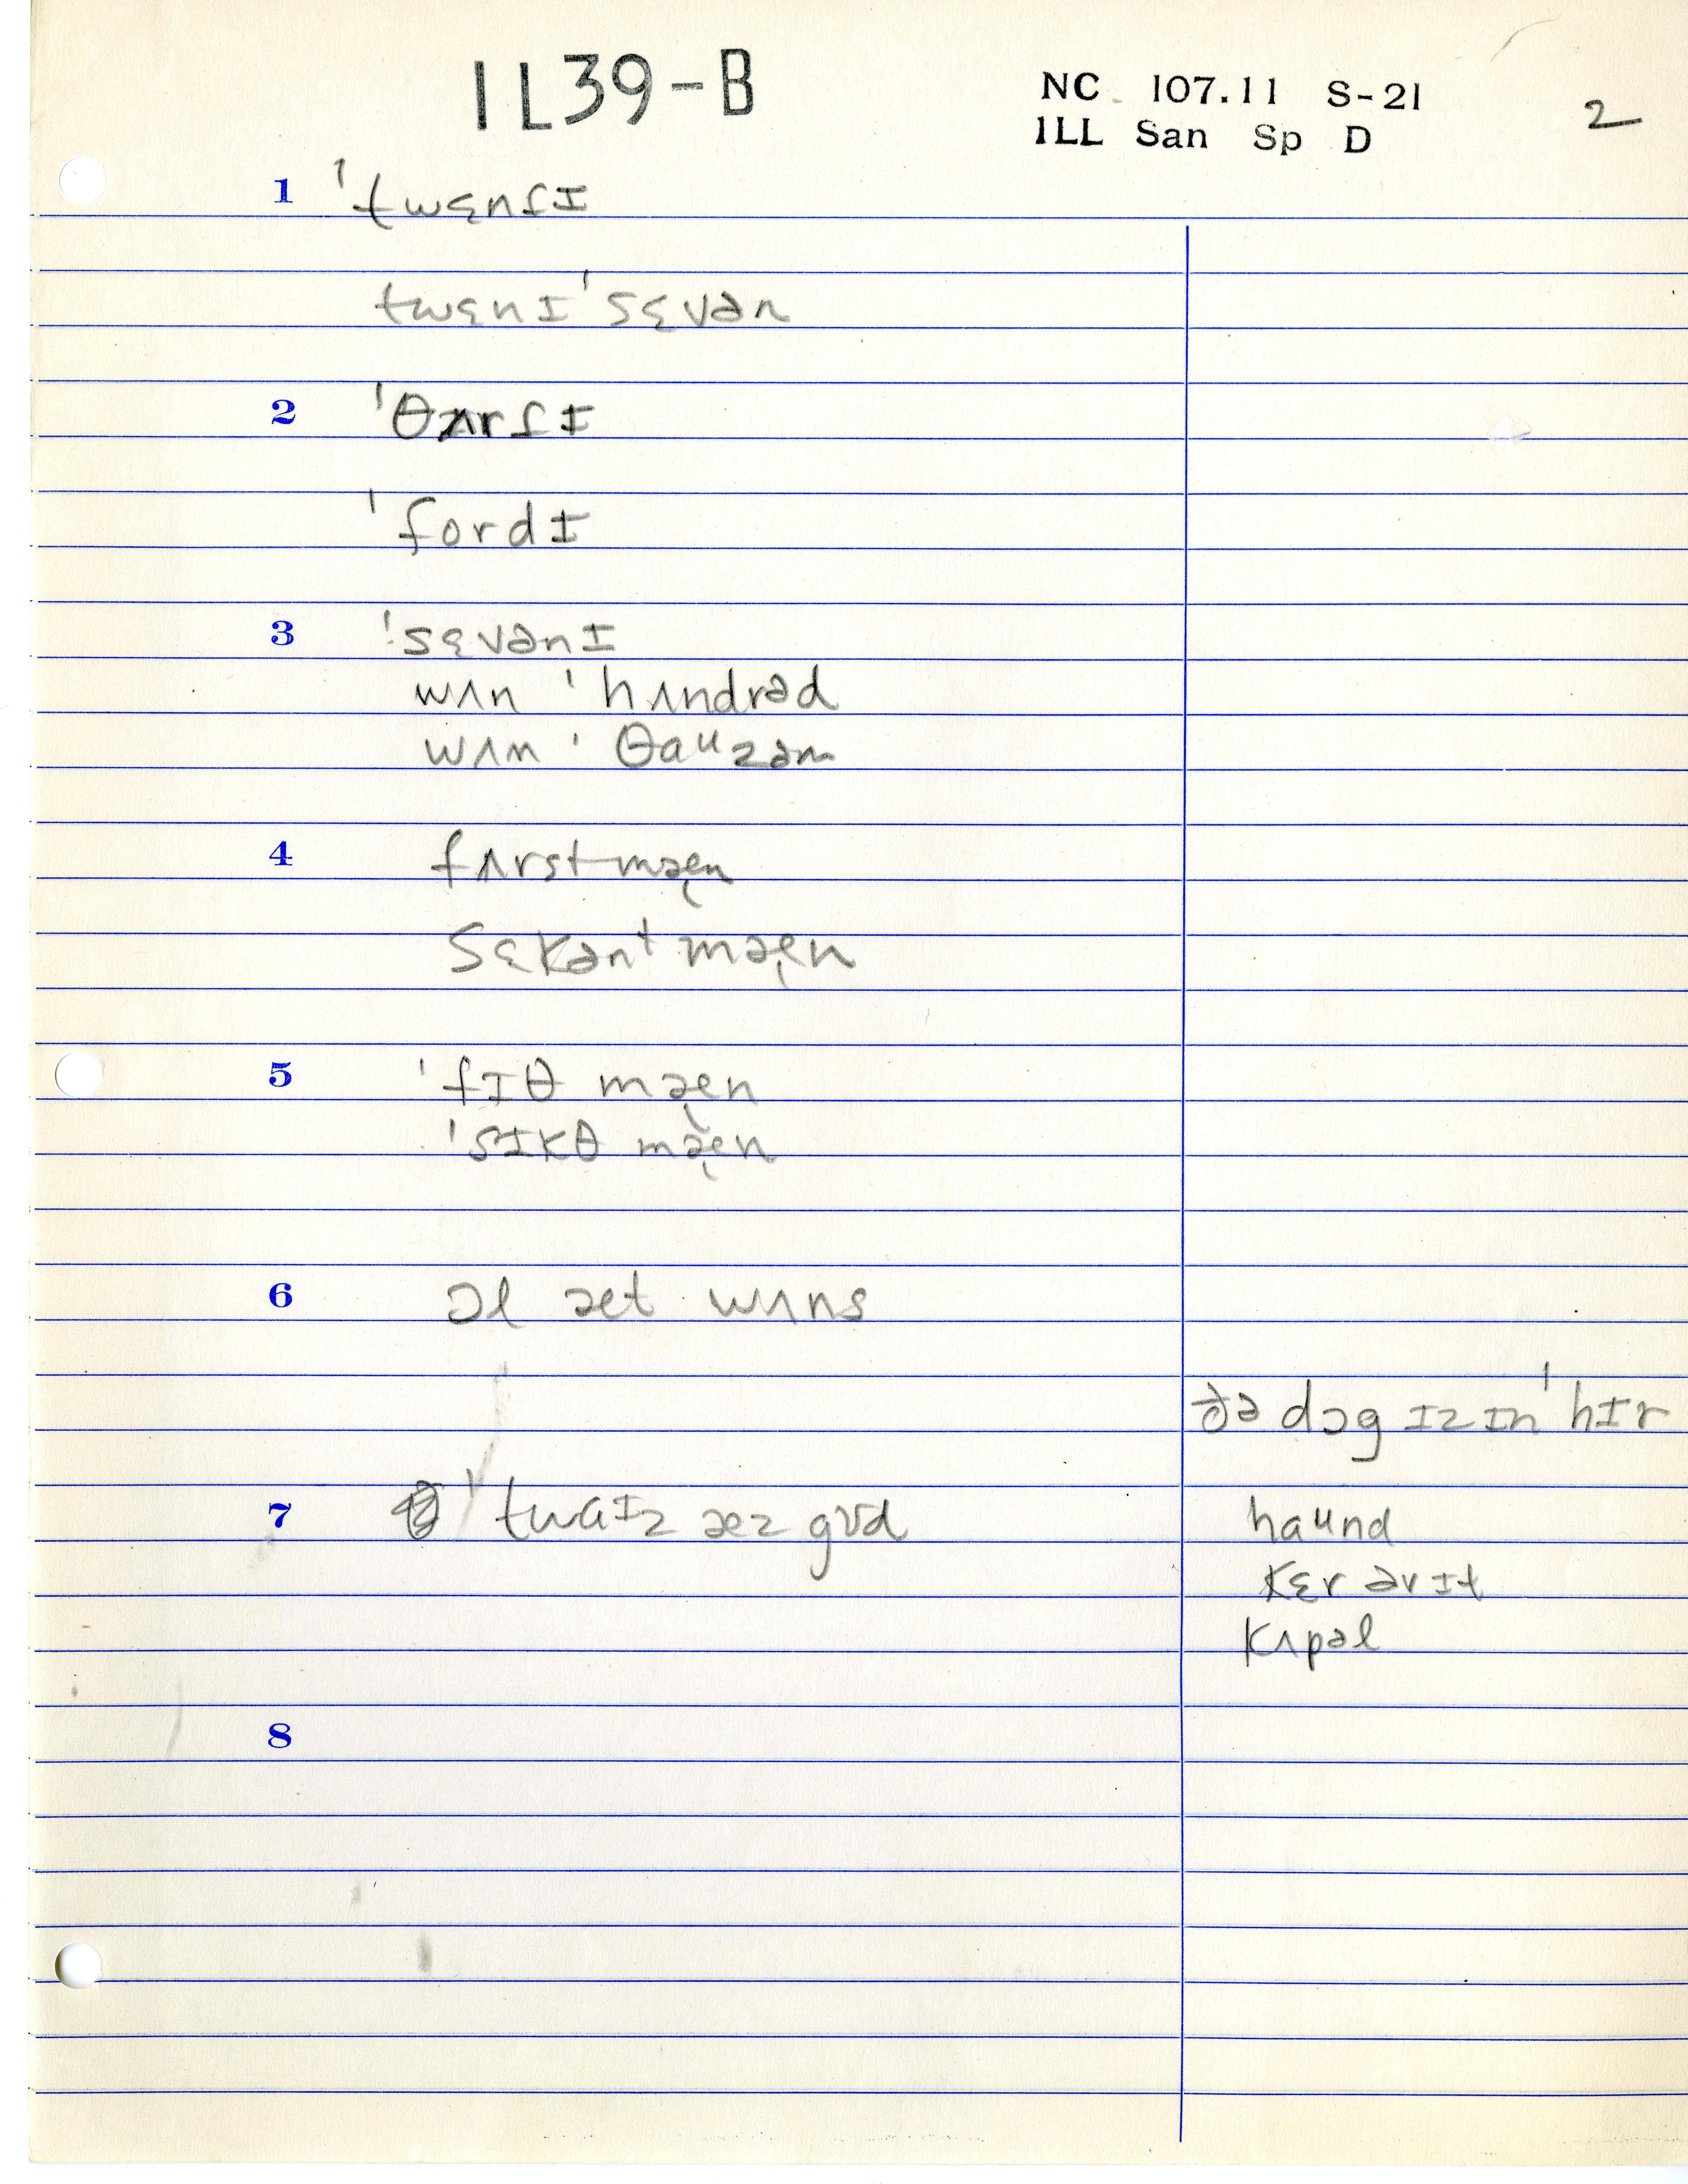 IL39-B
NC 107.11 S-21
ILL San Sp D
2
1 ˈtwɛnſɪ
twɛnɪˈsɛvən
2 ˈθʌrſɪ
ˈfordɪ
3 ˈsɛvənɪ
wʌn ˈhʌndrəd
wʌn ˈθaᵘzən
4 fʌrstmæ̨n
sɛkənᵗmæ̨n
5 ˈfɪθ mæ̨n
ˈsɪkθ mæ̨n
6 ɔl æt wʌns
ðə dɔg ɪz ɪnˈhɪr
7 ˈtwaᶦz æz gʊd
haᵘnd
kɛr əvɪt
kʌpəl
8